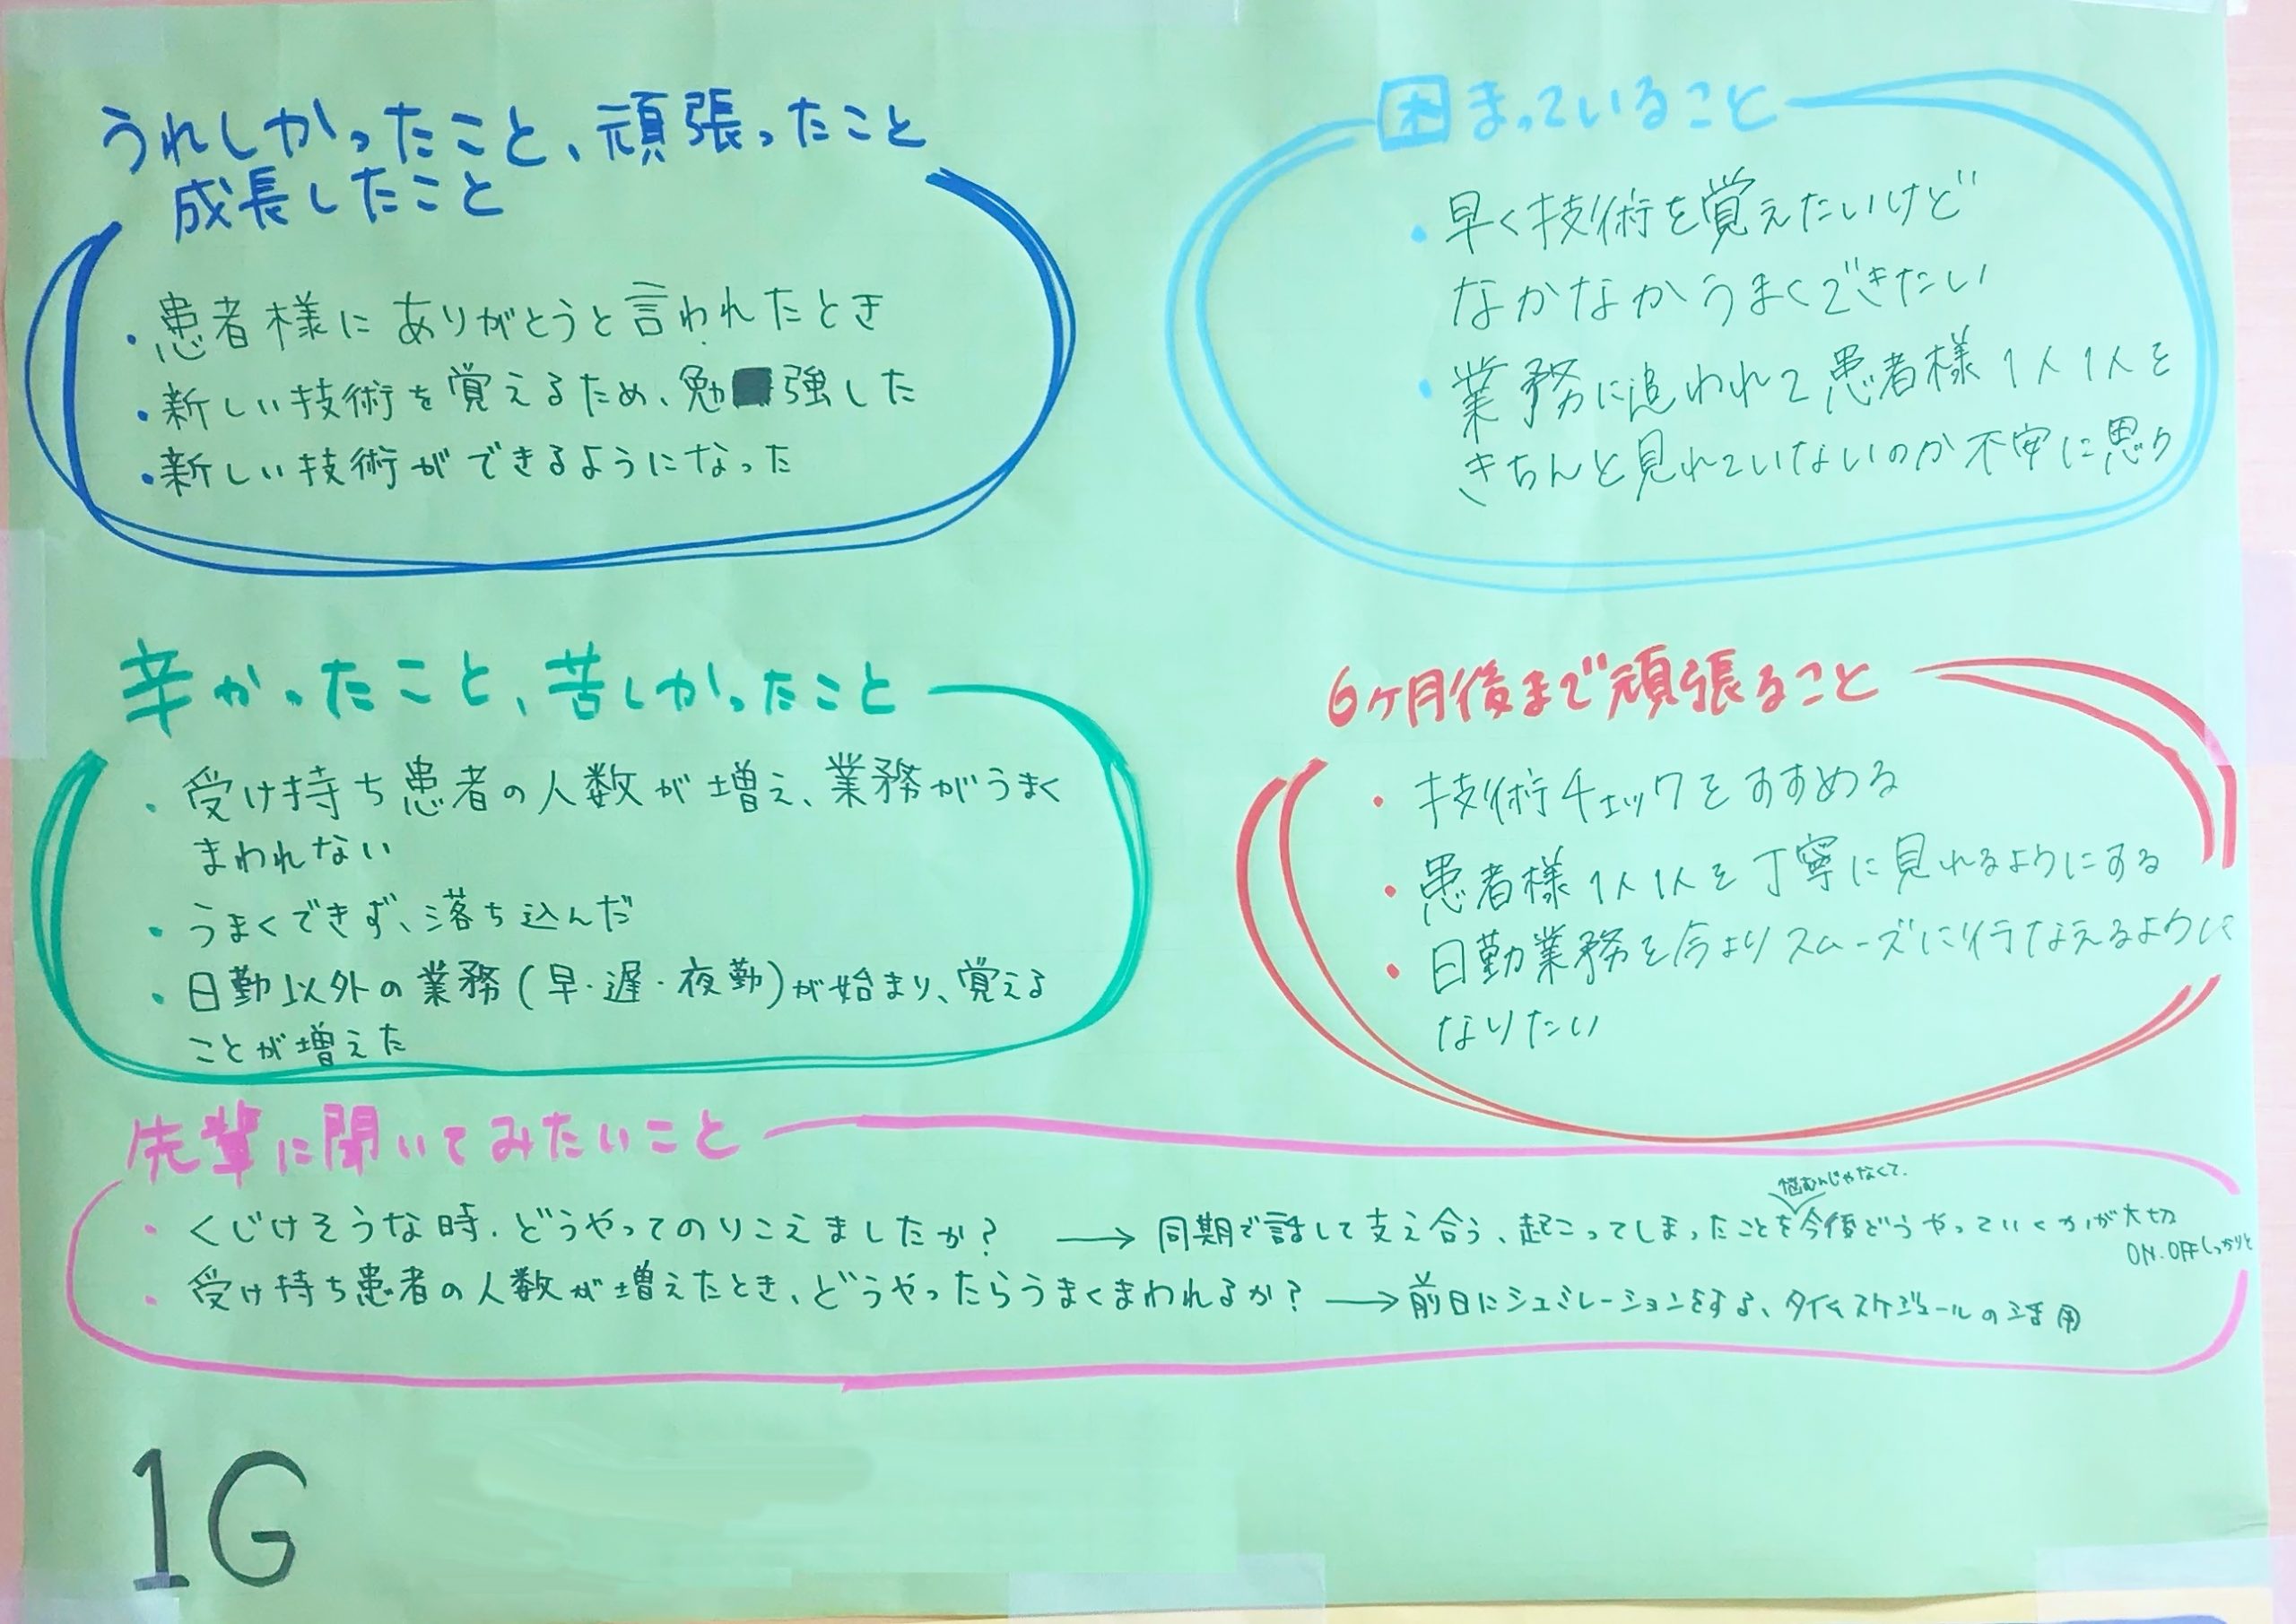 うれしかったこと、頑張ったこと
成長したこと
・患者様にありがとうと言われたとき
・新しい技術を覚えるため、勉強した
・新しい技術ができるようになった
困まっていること
・早く技術を覚えたいけど
なかなかうまくできたい
・業務に追われて患者様1人1人を
きちんと見れていないのか不安に思う
辛かったこと、苦しかったこと
・受け持ち患者の人数が増え、業務がうまく
まわれない
・うまくできず、落ち込んだ
・日勤以外の業務(早・遅・夜勤)が始まり、覚える
ことが増えた
6ヶ月後まで頑張ること
・技術チェックをすすめる
・患者様1人1人を丁寧に見れるようにする
・日勤業務を今よりスムーズに行なえるように
なりたい
先輩に聞いてみたいこと
悩むんじゃなくて、
・くじけそうな時、どうやってのりこえましたか? → 同期で話して支え合う、起こってしまったことを今後どうやっていくかが大切
ON.OFFしっかりと
・受け持ち患者の人数が増えたとき、どうやったらうまくまわれるか? → 前日にシュミレーションをする、タイムスケジュールの活用
1G